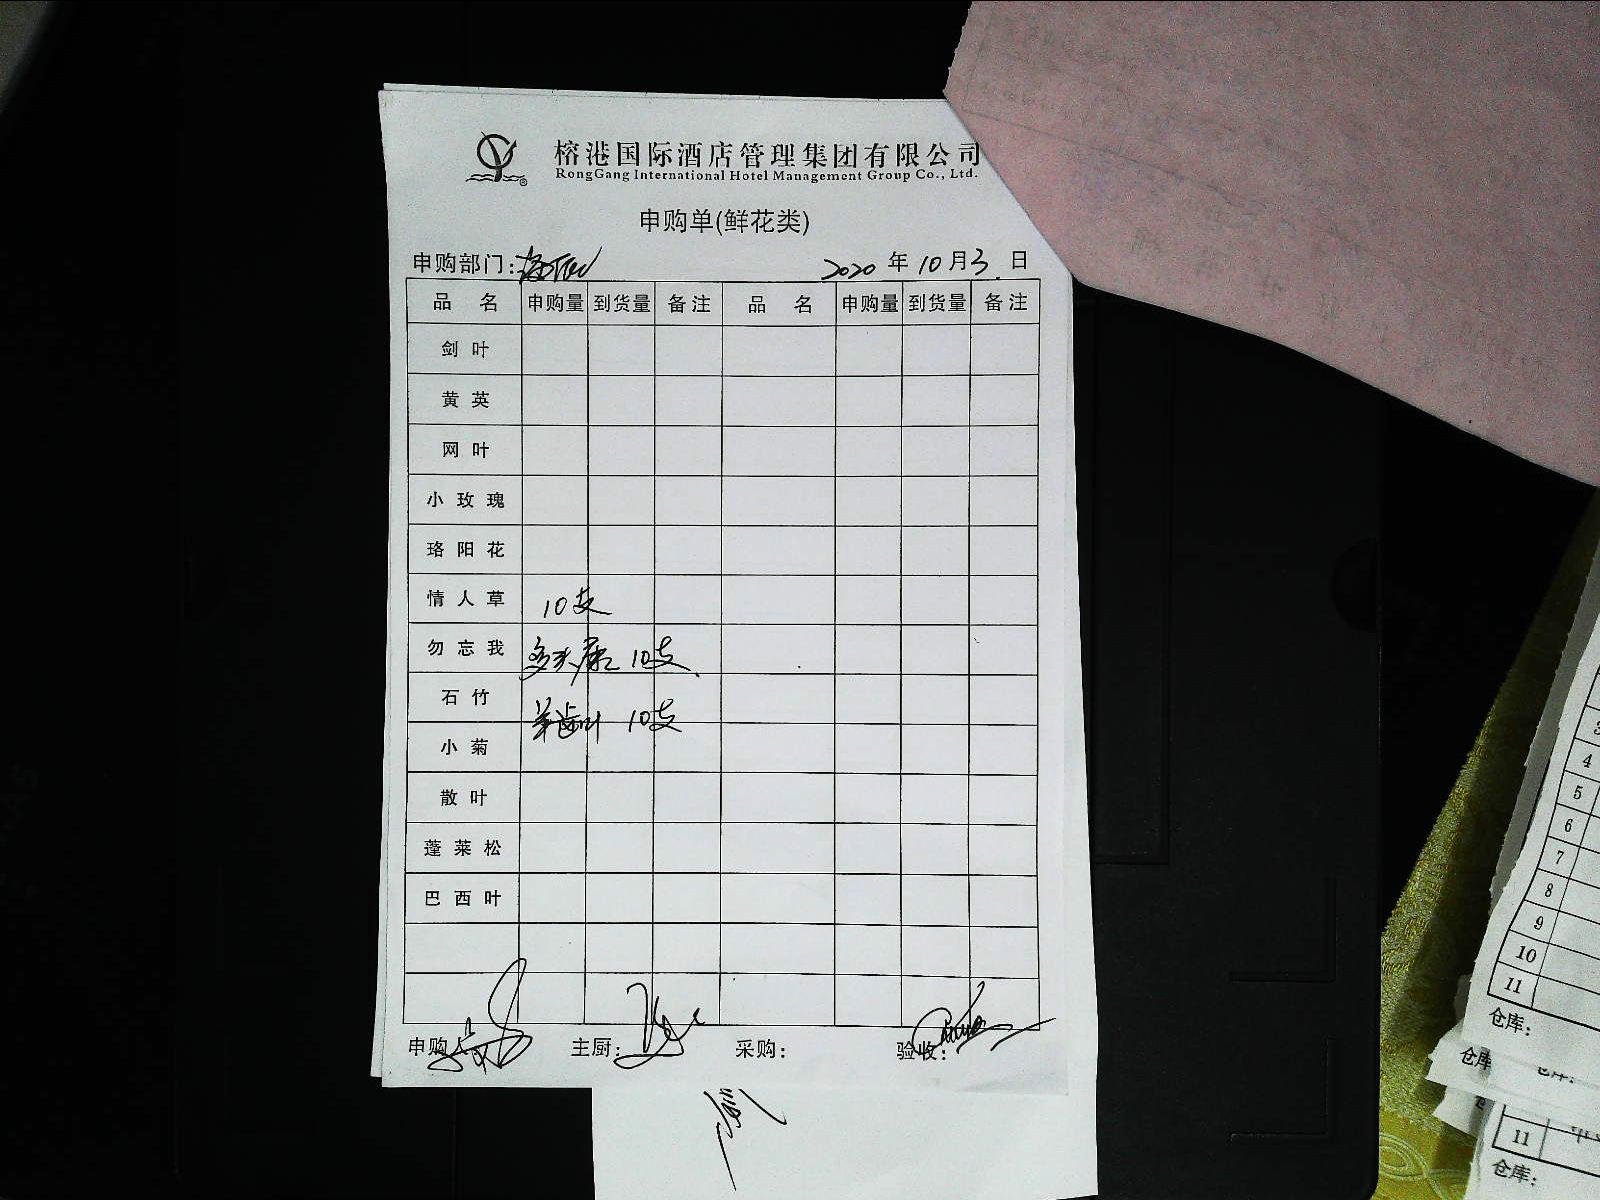 榕港国际酒店管理集团有限公司
RongGang International Hotel Management Group Co., Ltd.
申购单(鲜花类)
申购部门: 2020 年 10 月 3 日
品 名 申购量 到货量 备注 品 名 申购量 到货量 备注
剑叶
黄英
网叶
小玫瑰
珞阳花
情人草 10支
勿忘我 10支
石竹
羊齿叶 10支
小菊
散叶
蓬莱松
巴西叶
申购人 主厨: 采购: 验收:
3
4
5
6
7
8
9
10
11
仓库:
仓库
仓库:
11
仓库: